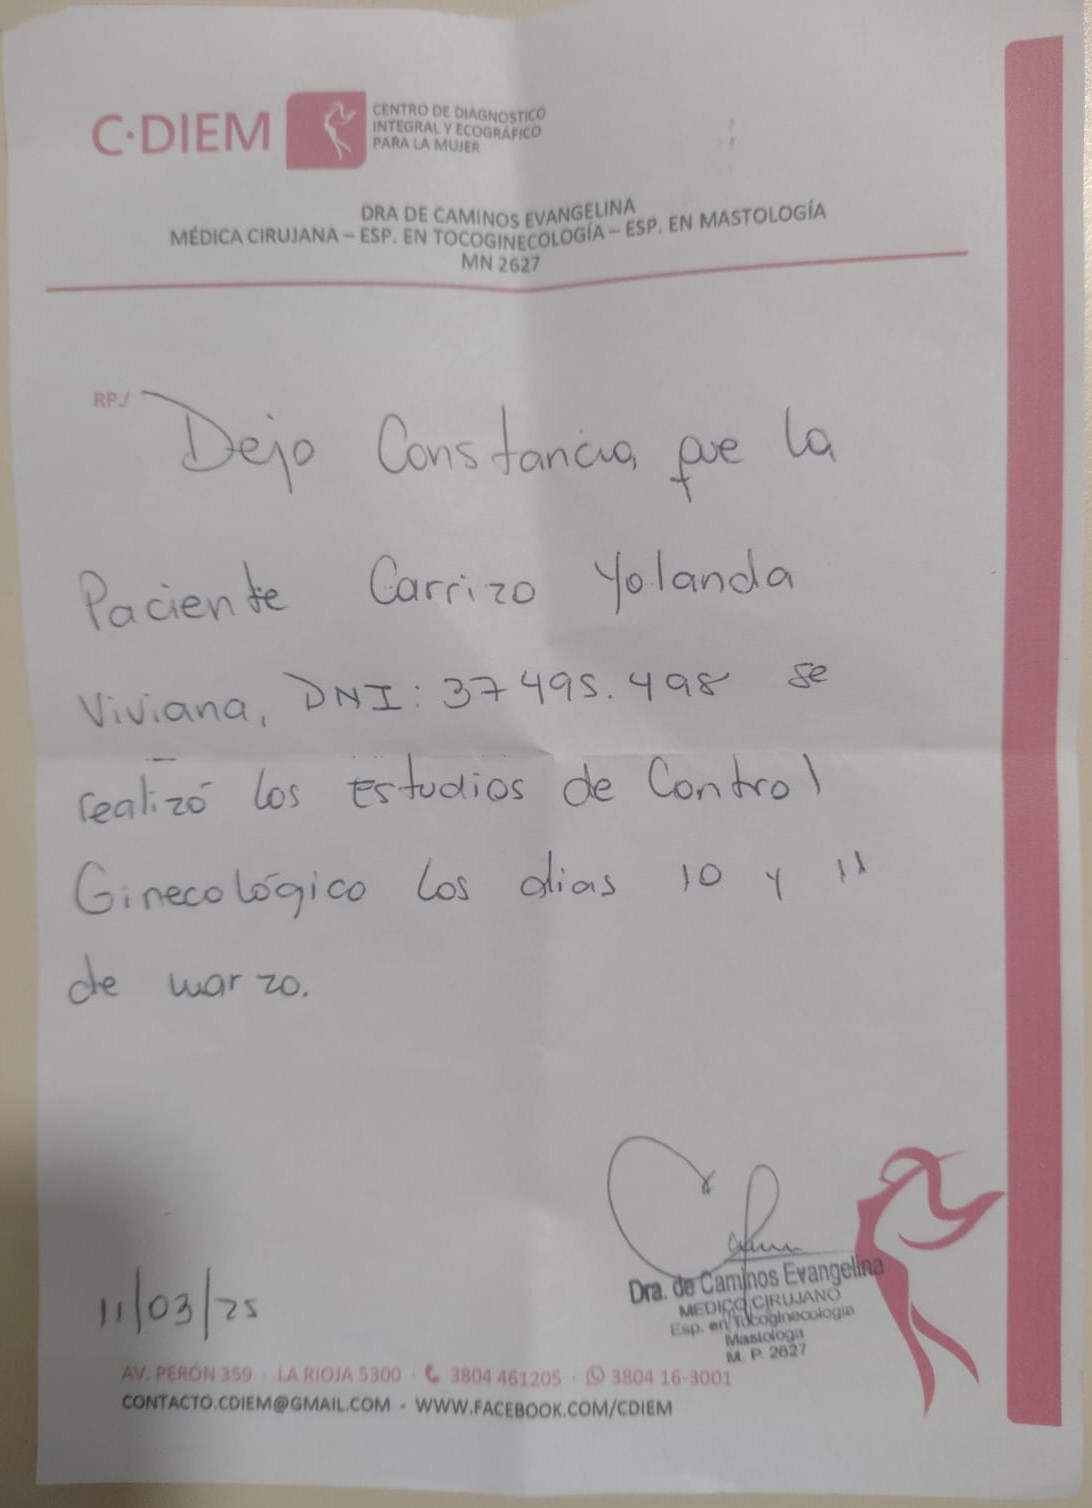 C·DIEM
CENTRO DE DIAGNOSTICO
INTEGRAL Y ECOGRÁFICO
PARA LA MUJER
DRA DE CAMINOS EVANGELINA
MÉDICA CIRUJANA – ESP. EN TOCOGINECOLOGÍA – ESP. EN MASTOLOGÍA
MN 2627
RP./
Dejo Constancia que la
Paciente Carrizo Yolanda
Viviana, DNI: 37495.498 se
realizó los Estudios de Control
Ginecológico los dias 10 y 11
de marzo.
11/03/25
Dra. de Caminos Evangelina
MEDICO CIRUJANO
Esp. en Tocoginecologia
Mastologa
M. P. 2627
AV. PERÓN 359 · LA RIOJA 5300 · 3804 461205 · 3804 16-3001
CONTACTO.CDIEM@GMAIL.COM - WWW.FACEBOOK.COM/CDIEM